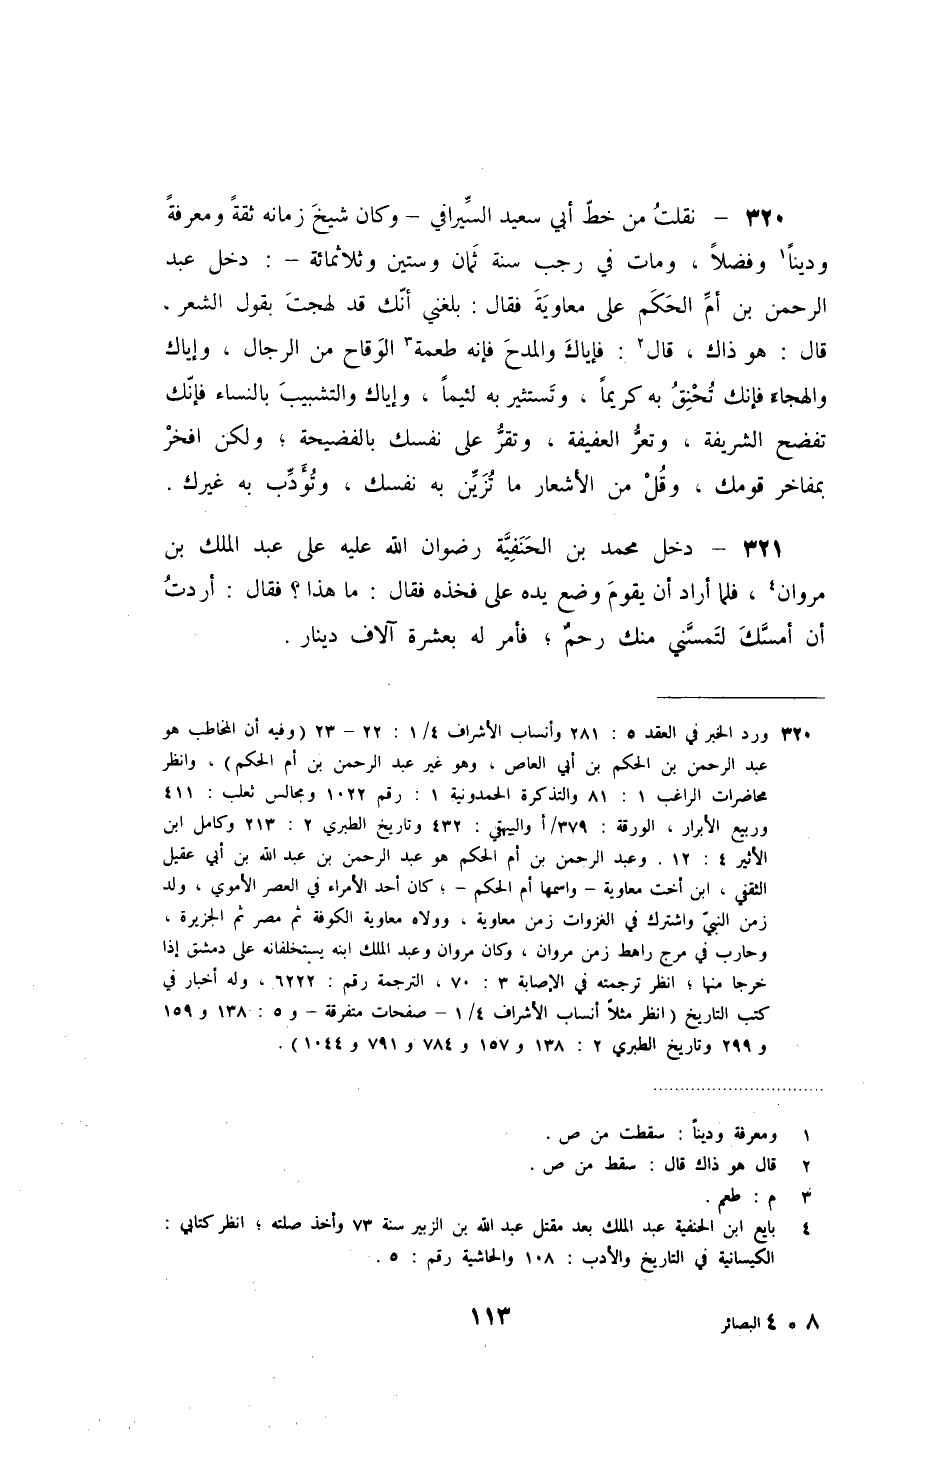 ٣٢٠ – نقلتُ من خطّ أبي سعيد السِّيرافي – وكان شيخَ زمانه ثقةً ومعرفةً
وديناً١ وفضلاً ، ومات في رجب سنة ثَمان وستين وثلاثمائة – : دخل عبد
الرحمن بن أمِّ الحَكَم على معاويَةَ فقال : بلغني أنّك قد لهجتَ بقول الشعر .
قال : هو ذاك ، قال٢ : فإياكَ والمدحَ فإنه طعمة٣ الوَقاح من الرجال ، وإياك
والهجاء فإنك تُحْنِقُ به كريماً ، وتَستثير به لئيماً ، وإياك والتشبيبَ بالنساء فإنّك
تفضح الشريفة ، وتعرُّ العفيفة ، وتقرُّ على نفسك بالفضيحة ؛ ولكن افخرْ
بمفاخر قومك ، وقُلْ من الأشعار ما تُزَيِّن به نفسك ، وتُؤَدِّب به غيرك .
٣٢١ – دخل محمد بن الحَنَفِيَّة رضوان الله عليه على عبد الملك بن
مروان٤ ، فلما أراد أن يقومَ وضع يده على فخذه فقال : ما هذا ؟ فقال : أردتُ
أن أمسَّكَ لتَمسَّني منك رحمٌ ؛ فأمر له بعشرة آلاف دينار .
٣٢٠ ورد الخبر في العقد ٥ : ٢٨١ وأنساب الأشراف ٤/ ١ : ٢٢ – ٢٣ (وفيه أن المخاطب هو
عبد الرحمن بن الحكم بن أبي العاص ، وهو غير عبد الرحمن بن أم الحكم) ، وانظر
محاضرات الراغب ١ : ٨١ والتذكرة الحمدونية ١ : رقم ١٠٢٢ ومجالس ثعلب : ٤١١
وربيع الأبرار ، الورقة : ٣٧٩/ أ والبيهقي : ٤٣٢ وتاريخ الطبري ٢ : ٢١٣ وكامل ابن
الأثير ٤ : ١٢ . وعبد الرحمن بن أم الحكم هو عبد الرحمن بن عبد الله بن أبي عقيل
الثقفي ، ابن أخت معاوية – واسمها أم الحكم – ؛ كان أحد الأمراء في العصر الأموي ، ولد
زمن النبيّ واشترك في الغزوات زمن معاوية ، وولاه معاوية الكوفة ثم مصر ثم الجزيرة ،
وحارب في مرج راهط زمن مروان ، وكان مروان وعبد الملك ابنه يستخلفانه على دمشق إذا
خرجا منها ؛ انظر ترجمته في الإصابة ٣ : ٧٠ ، الترجمة رقم : ٦٢٢٢ ، وله أخبار في
كتب التاريخ (انظر مثلاً أنساب الأشراف ٤/ ١ – صفحات متفرقة – و ٥ : ١٣٨ و ١٥٩
و ٢٩٩ وتاريخ الطبري ٢ : ١٣٨ و ١٥٧ و ٧٨٤ و ٧٩١ و ١٠٤٤) .
١ ومعرفة وديناً : سقطت من ص .
٢ قال هو ذاك قال : سقط من ص .
٣ م : طعم .
٤ بايع ابن الحنفية عبد الملك بعد مقتل عبد الله بن الزبير سنة ٧٣ وأخذ صلته ؛ انظر كتابي :
الكيسانية في التاريخ والأدب : ١٠٨ والحاشية رقم : ٥ .
٨ * ٤ البصائر
١١٣